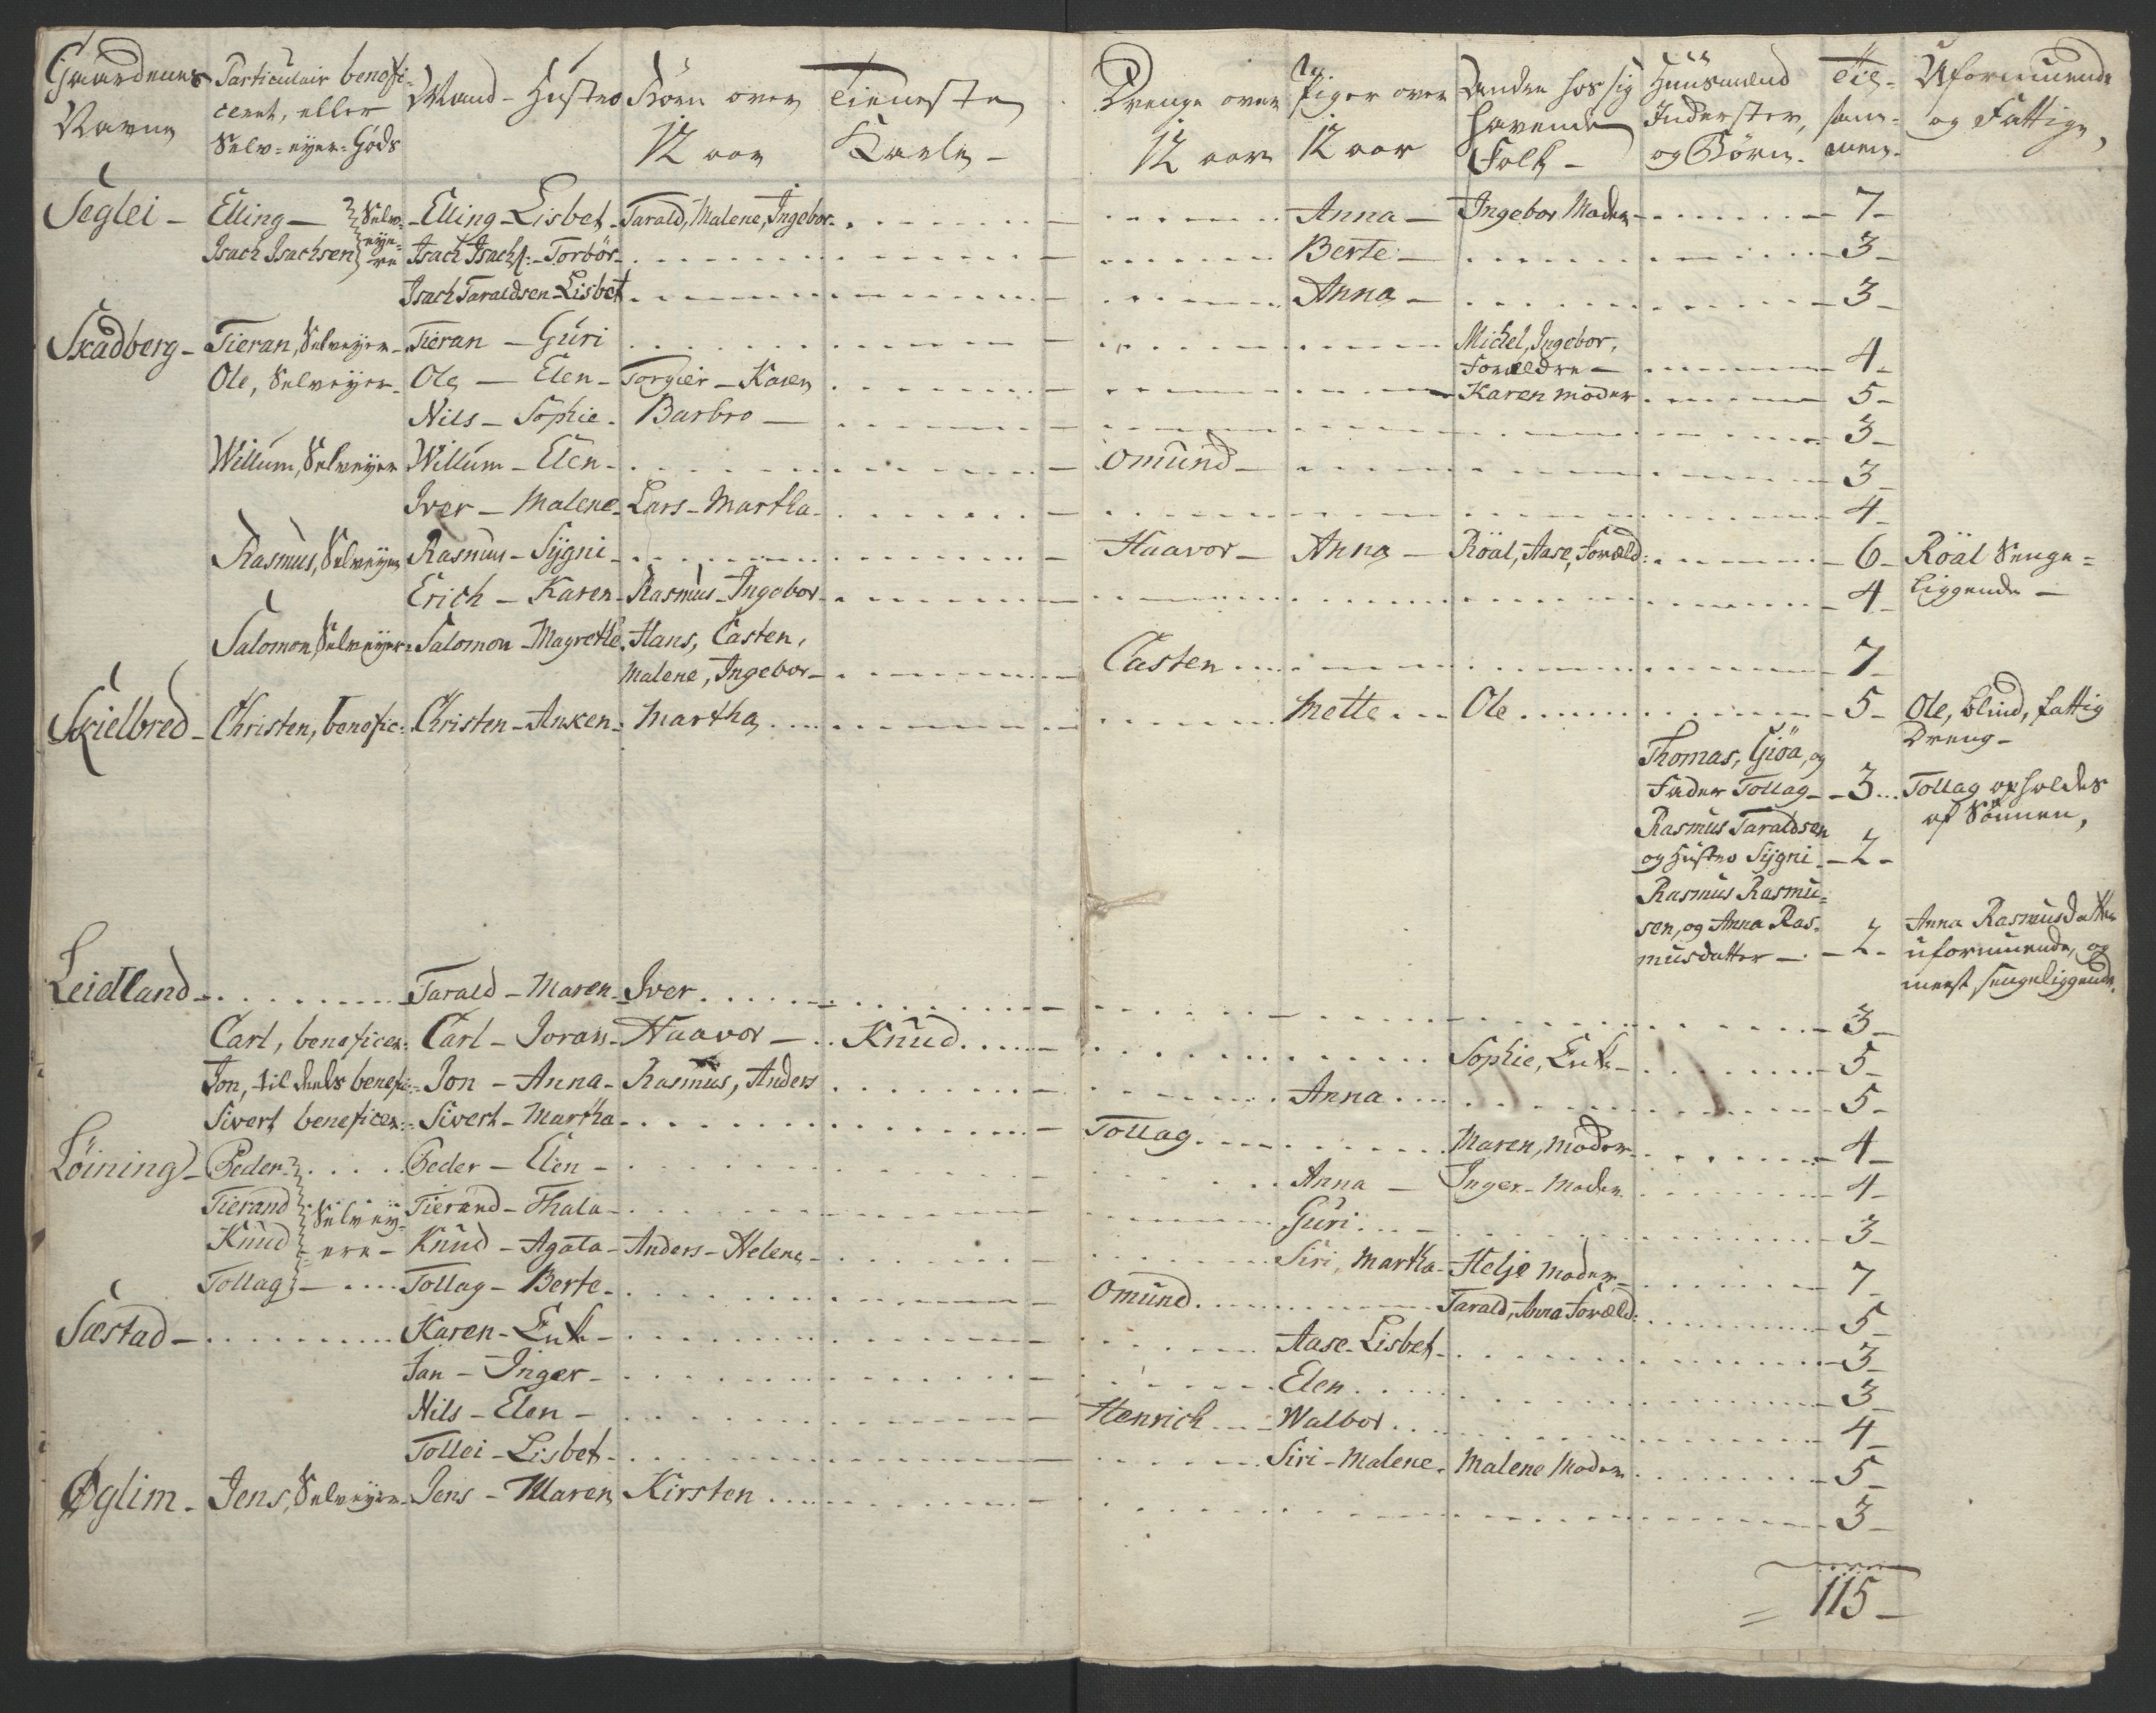 Gaardenes Navne | Particulair benefi-cceret, eller Selv-eyer-Gods | Mand - Hustro | Börn over 12 aar | Tieneste Karle - | Drenge over 12 aar | Piger over 12 aar | Anden hos sig havende Folk - | Huusmænd Inderster, og Börn. | Til-sam-men- | Uformuende og Fattige,
Seglei - | Elling - Selv-eye-re | Elling - Lisbet - | Tarald, Malene, Ingebor - | | | Anna - | Ingebor Moder - | | 7 -
Isach Isachsen | Isach Isachs: - Torbör - | | | | Berte - | | | 3 -
Isach Taraldsen - Lisbet | | | | Anna - | | | 3 -
Skadberg - | Tieran, Selveyer - | Tieran - Guri | | | | | Michel, Ingebor, Forældre - | | 4 -
Ole, Selveyer - | Ole - Elen - | Torgier - Karen | | | | Karen Moder | | 5 -
Nils - Sophie - | Barbro - | | | | | | 3 -
Willum, Selveyer | Willum - Elen - | | | Omund - | | | | 3 -
Iver - Malene - | Lars - Martha - | | | | | | 4 -
Rasmus, Selveyer | Rasmus - Sygni - | | | Haavor - | Anna - | Röal, Aase, Foræld: | | 6 - | Röal Senge-liggende -
Erich - Karen - | Rasmus - Ingebor - | | | | | | 4 -
Salomon, Selveyer - | Salomon - Magrethe. | Hans, Casten, Malene, Ingebor - | | Casten | | | | 7 -
Skielbred - | Christen, benefic: | Christen - Anken - | Martha | | | Mette | Ole | | 5 - | Ole, blind, fattig Dreng -
Thomas, Giöa, og Fader Tollag - | 3 | Tollag opholdes af Sönnen,
Rasmus Taraldsen og Hustro Sygni - | 2 -
Rasmus Rasmu-sen, og Anna Ras-musdatter - | 2 - | Anna Rasmusdatter uformuende, og meest sengeliggende.
Leidland - | | Tarald - Maren - | Iver | | | | | | 3 -
Carl, beneficer: | Carl - Joran - | Haavor - | Knud | | | Sophie, Enk - | | 5 -
Jon, til deels benefi: | Jon - Anna - | Rasmus, Anders | | | Anna | | | 5 -
Sivert beneficer: | Sivert - Martha - | | | Tollag | | Maren, Moder | | 4 -
Löining - | Peder | Peder - Elen - | | | | Anna - | Inger - Moder | | 4 -
Tierand Selvey-ere - | Tierand - Thala - | | | | Guri | | | 3 -
Knud | Knud - Agata - | Anders - Helene - | | | Siri, Martha - | Helje Moder - | | 7 -
Tollag - | Tollag - Berte - | | | Omund | | Tarald, Anna Foræld: | | 5 -
Sæstad - | | Karen - Enk - | | | | Aase - Lisbet - | | | 3 -
Jan - Inger - | | | | Elen | | | 3 -
Nils - Elen - | | | Henrich | Walbor | | | 4 -
Tollei - Lisbet - | | | | Siri - Malene - | Malene Moder | | 5 -
Øglim - | Jens, Selveyer - | Jens - Maren | Kirsten | | | | | | 3 -
= 115 -